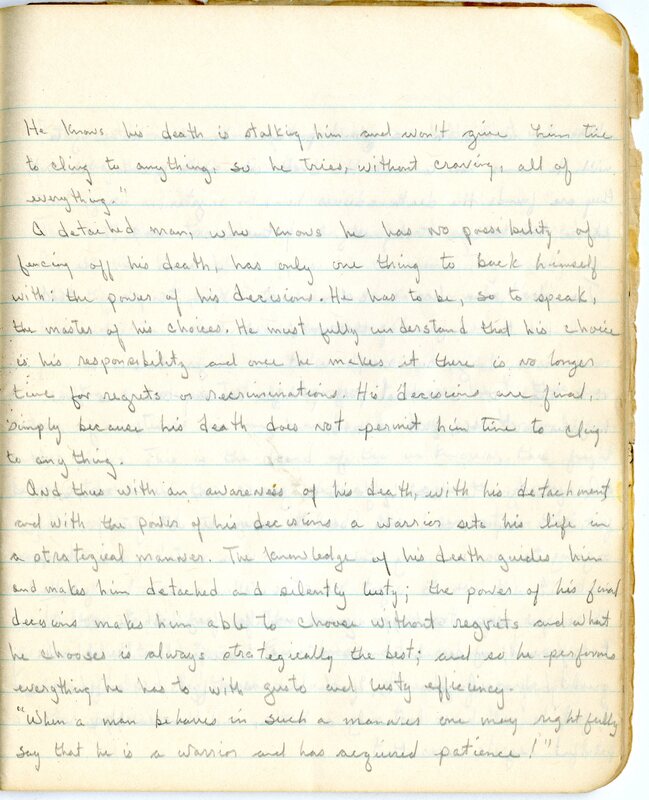 He knows his death is stalking him and won't give him time
to cling to anything, so he tries, without craving, all of
everything."
A detached man, who knows he has no possibility of
fencing off his death, has only one thing to back himself
with: the power of his decisions. He has to be, so to speak,
the master of his choices. He must fully understand that his choice
is his responsibility and once he makes it there is no longer
time for regrets or recriminations. His decisions are final,
simply because his death does not permit him time to cling
to anything.
And thus with an awareness of his death, with his detachment
and with the power of his decisions a warrior sets his life in
a strategical manner. The knowledge of his death guides him
and makes him detached and silently lusty; the power of his final
decisions makes him able to choose without regrets and what
he chooses is always strategically the best; and so he performs
everything he has to with gusto and lusty efficiency.
"When a man behaves in such a manner one may rightfully
say that he is a warrior and has acquired patience!"